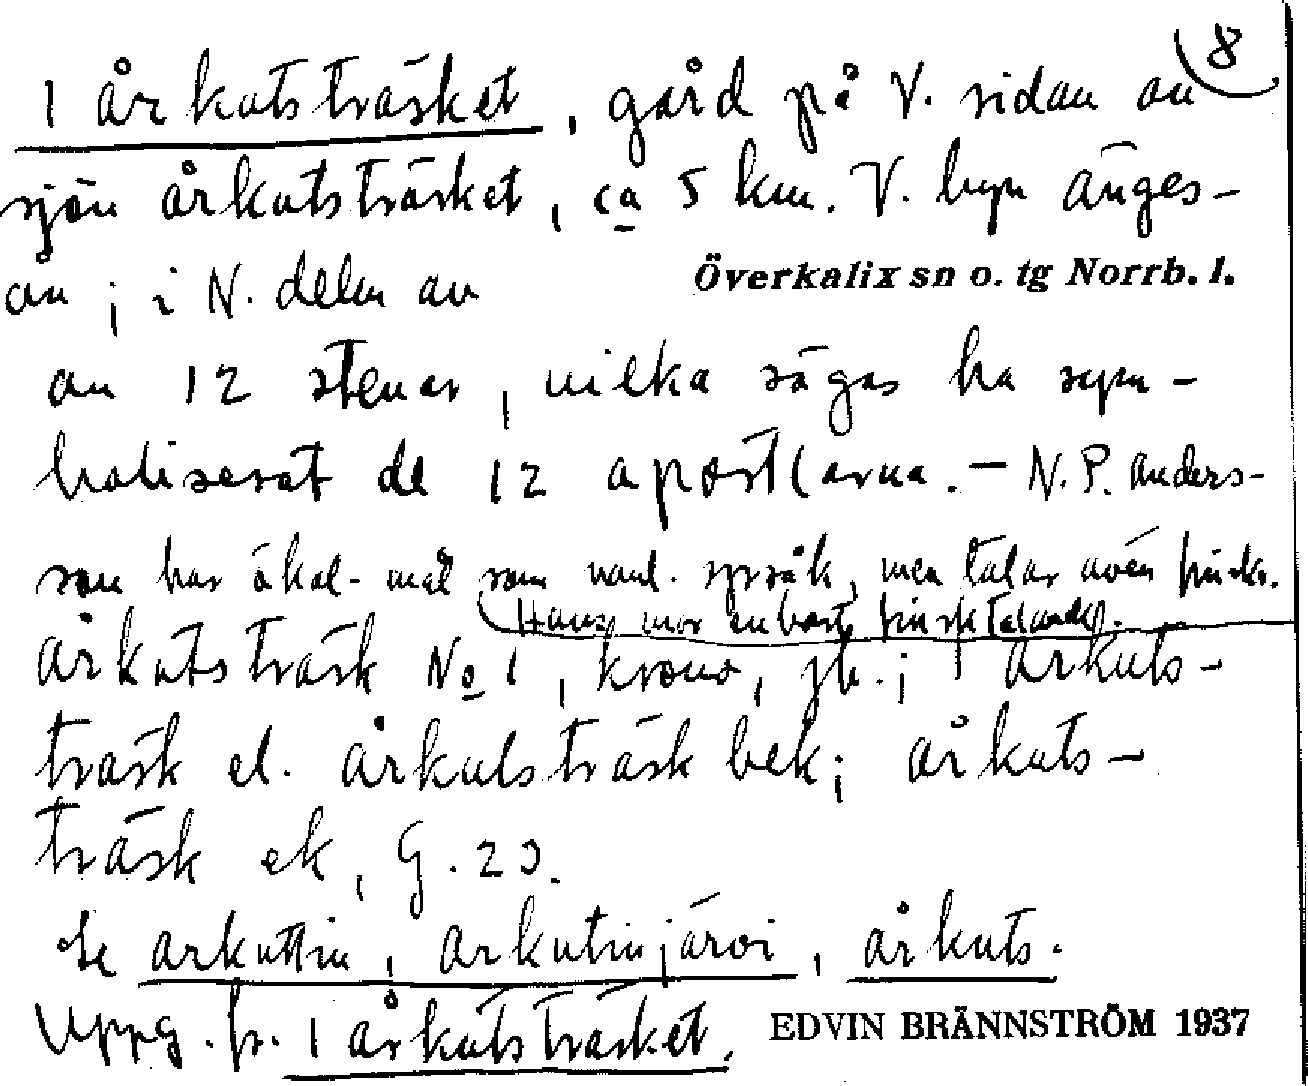 8
1 årkutsträsket, gård på V. sidan av
sjön årkutsträsket, ca 5 km. V. byn änges-
ån; i N. delen av
Överkalix sn o. tg Norrb. l.
av 12 stenar, vilka sägas ha sym-
boliserat de 12 apostlarna. – N. P. Anders-
son har ökal-mål som vanl. språk, men talar även finska.
Hans mor enbart finsktalande.
årkutsträsk No 1, krono, jb.; 1 årkuts-
träsk el. årkutsträsk bek; årkuts-
träsk ek, G. 23.
Se arkuttin, arkutinjärvi, årkuts.
Uppg. fr. 1 årkutsträsket.
EDVIN BRÄNNSTRÖM 1937